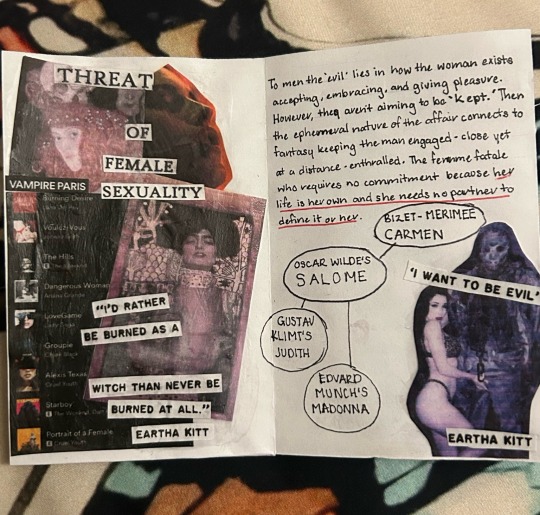 THREAT
OF
FEMALE
SEXUALITY
VAMPIRE PARIS
Burning Desire
Vous
The Hills
Dangerous Woman
Ariana Grande
LoveGame
Lady Gaga
Groupie
Alexis Texas
Starboy
Portrait of a Female
"I'D RATHER
BE BURNED AS A
WITCH THAN NEVER BE
BURNED AT ALL."
EARTHA KITT
To men the 'evil' lies in how the woman exists
accepting, embracing, and giving pleasure.
However, they aren't aiming to be "kept." Then
the ephemeral nature of the affair connects to
fantasy keeping the man engaged - close yet
at a distance - enthralled. The femme fatale
who requires no commitment because her
life is her own and she needs no partner to
define it or her.
BIZET - MERIMEE
CARMEN
OSCAR WILDE'S
SALOME
GUSTAV
KLIMT'S
JUDITH
EDVARD
MUNCH'S
MADONNA
"I WANT TO BE EVIL"
EARTHA KITT